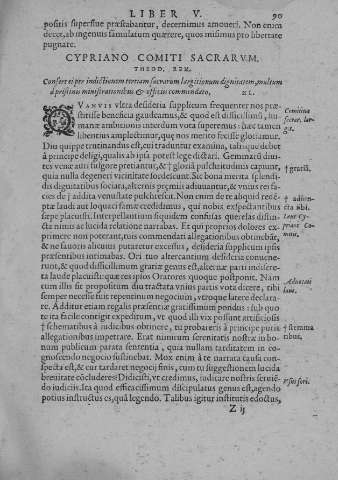 LIBER V. 90
positis superflue præstabantur, decernimus amoueri. Non enim
decet, ab ingenuis famulatum quærere, quos misimus pro libertate
pugnare.
CYPRIANO COMITI SACRARVM.
THEOD. REX.
Confert ei per indictionem tertiam sacrarum largitionum dignitatem, multum
à pristinis ministrationibus & officiis commendato, XL.
QVAMVIS vltra desideria supplicum frequenter nos præ-
stitisse beneficia gaudeamus, & quod est difficilimũ, hu-
manæ ambitionis interdum vota superemus: hæc tamen
libentius amplectimur, quæ nos merito fecisse gloriamur.
Diu quippe trutinandus est, cui traduntur examina, talisque debet
à principe deligi, qualis ab ipsa potest lege dictari. Geminatũ diui-
tes venæ auri fulgore pretiantur, & † gloriã pulchritudinis capiunt,
quia nulla degeneri vicinitate sordescunt. Sic bona merita splendi-
dis dignitatibus sociata, alternis præmiis adiuuantur, & vnius rei fa-
cies de † addita venustate pulchrescit. Non enim de te aliquid rece-
ptæ laudi aut loquaci famæ credidimus, qui nobis expectantibus
sæpe placuisti. Interpellantium siquidem confusas querelas distin-
cta nimis ac lucida relatione narrabas. Et qui proprios dolores ex-
primere non poterant, tuis commendati allegationibus obtinebãt,
& ne fauoris alicuius putaretur excessus, desideria supplicum ipsis
præsentibus intimabas. Ori tuo altercantium desideria conuene-
runt, & quod difficillimum gratiæ genus est, alteri
ta laude placuisti: quæ res optios Oratores quoque postponit. Nam
cum illis sit propositum diu tractata vnius partis vota dicere, tibi
semper necesse fuit repentinum negocium, vtroque latere declara-
re. Additur etiam regalis præsentiæ gratissimum pondus: sub quo
te ita facile contigit expeditum, vt quod illi vix possunt artificiosis
† schematibus à iudicibus obtinere, tu probareris à principe puris
allegationibus impetrare. Erat nimirum serenitatis nostræ in bo-
num publicum parata sententia, quia nullam tarditatem in co-
gnoscendo negocio sustinebat. Mox enim à te narrata causa con-
specta est, & cur tardaret negocij finis, cum tu suggestionem lucida
breuitate cõcluderes? Didicisti, vt credimus, iudicare nostris seruiẽ-
do iudiciis. Ita quod efficacissimum discipulatus genus est, agendo
potius instructus es, quàm legendo. Talibus igitur institutis edoctus,
Z ij
Comitiua
sacrar. lar-
git.
† gratiã.
† adiun-
cta sibi.
Laus Cy-
priani Co-
mitis.
Aduocati
laus.
† stemma
tibus.